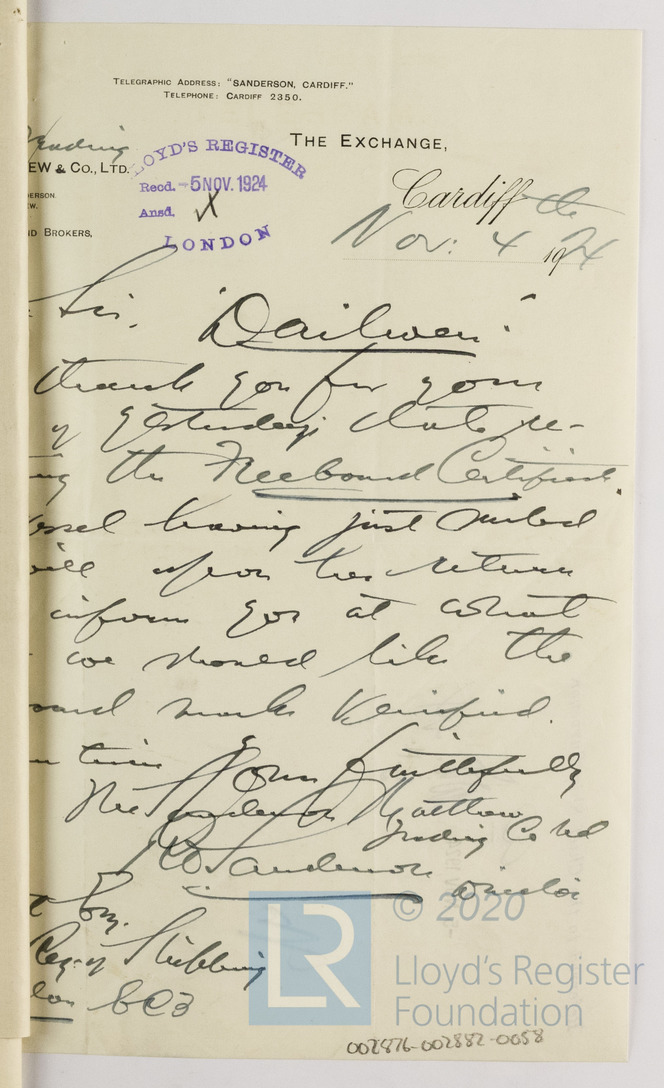 TELEGRAPHIC ADDRESS: "SANDERSON, CARDIFF."
TELEPHONE: CARDIFF 2350.
THE EXCHANGE,
Trading
EW & CO., LTD.
DERSON.
EW.
ND BROKERS,
LLOYD'S REGISTER
Recd. -5 NOV. 1924
Ansd.
LONDON
Cardiff
Nov: 4 1924
Sir,
"Dailwen"
thank you for your
of yesterday's date re-
ng the Freeboard Certificate.
essel having just sailed
will upon her return
inform you at what
we should like the
oard marks Verified.
Yours faithfully
The Sanderson Matthew
Trading Co Ltd
Sanderson
Director
Reg. of Shipping
don EC3
LR
© 2020
Lloyd's Register
Foundation
002876-002882-0058